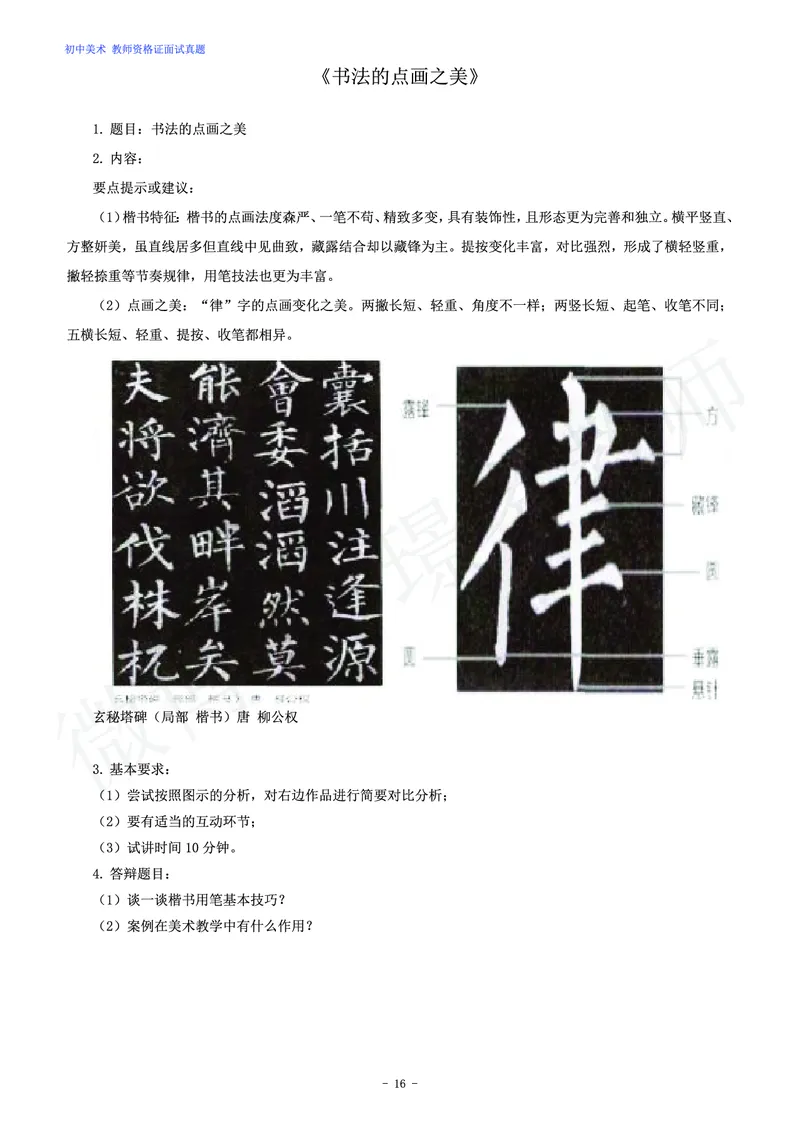 初中美术 教师资格证面试真题
《书法的点画之美》
1. 题目：书法的点画之美
2. 内容：
要点提示或建议：
（1）楷书特征：楷书的点画法度森严、一笔不苟、精致多变，具有装饰性，且形态更为完善和独立。横平竖直、
方整妍美，虽直线居多但直线中见曲致，藏露结合却以藏锋为主。提按变化丰富，对比强烈，形成了横轻竖重，
撇轻捺重等节奏规律，用笔技法也更为丰富。
（2）点画之美：“律”字的点画变化之美。两撇长短、轻重、角度不一样；两竖长短、起笔、收笔不同；
五横长短、轻重、提按、收笔都相异。
囊括川注逢源
會委滔滔然莫
能濟其畔岸矣
夫将欲伐株杌
律
露锋
方
藏锋
圆
圆
垂露
悬针
玄秘塔碑（局部 楷书）唐 柳公权
3. 基本要求：
（1）尝试按照图示的分析，对右边作品进行简要对比分析；
（2）要有适当的互动环节；
（3）试讲时间 10 分钟。
4. 答辩题目：
（1）谈一谈楷书用笔基本技巧？
（2）案例在美术教学中有什么作用？
- 16 -